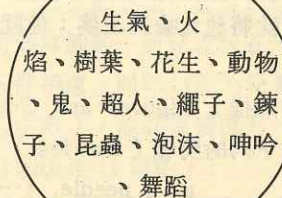 生氣、火
焰、樹葉、花生、動物
、鬼、超人、繩子、鍊
子、昆蟲、泡沫、呻吟
、舞蹈